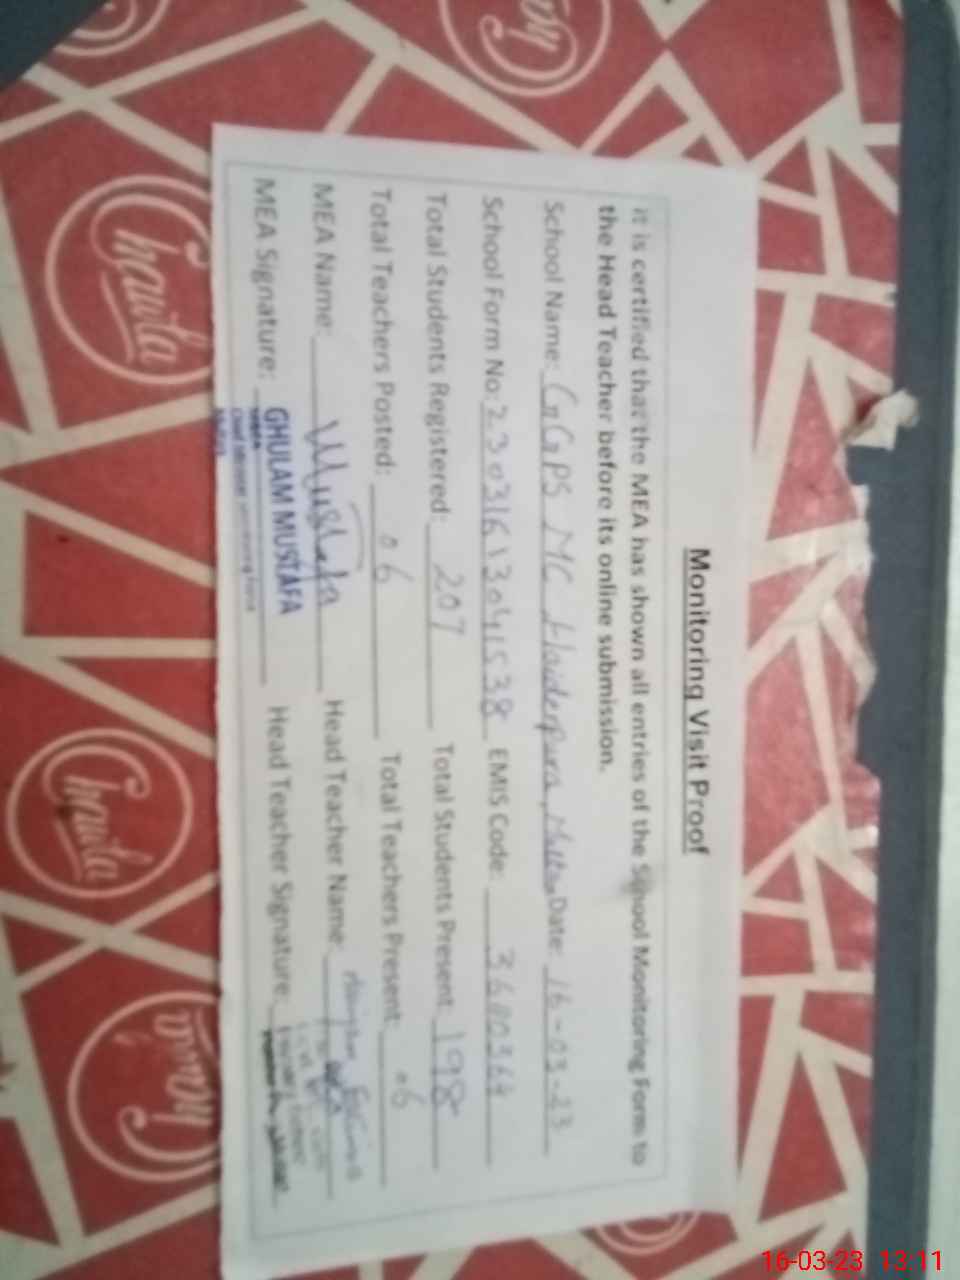 Monitoring Visit Proof
it is certified that the MEA has shown all entries of the School Monitoring Form to
the Head Teacher before its online submission.
School Name: GGPS MC Haiderpura, Multan Date: 16-03-23
School Form No: 23031613041538 EMIS Code:
Total Students Registered: 207 Total Students Present 198
Total Teachers Posted: 06 Total Teachers Present: 06
MEA Name: Mustafa Head Teacher Name
MEA Signature: GHULAM MUSTAFA Head Teacher Signature:
Chawla
Chawla
Chawla
Chawla
16-03-23 13:11